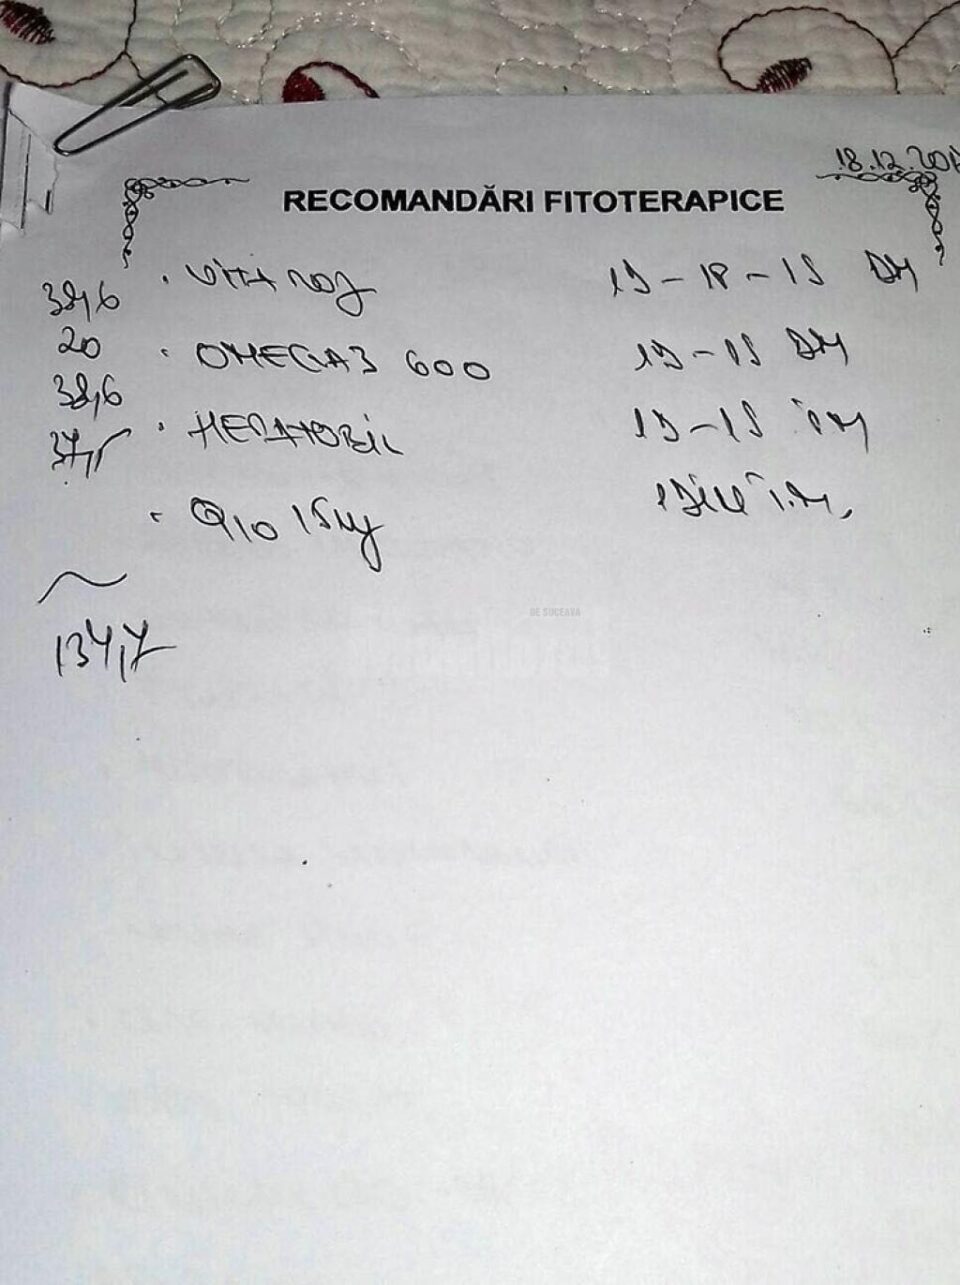 18.12.201
RECOMANDĂRI FITOTERAPICE
38,6 · VITA 1D-1P-1S DM
20 · OMEGA3 600 1D-1S DM
38,6 · HEPATOBIL 1D-1S ÎM
37,5 · Q10 15mg 1D ÎM,
134,7
DE SUCEAVA